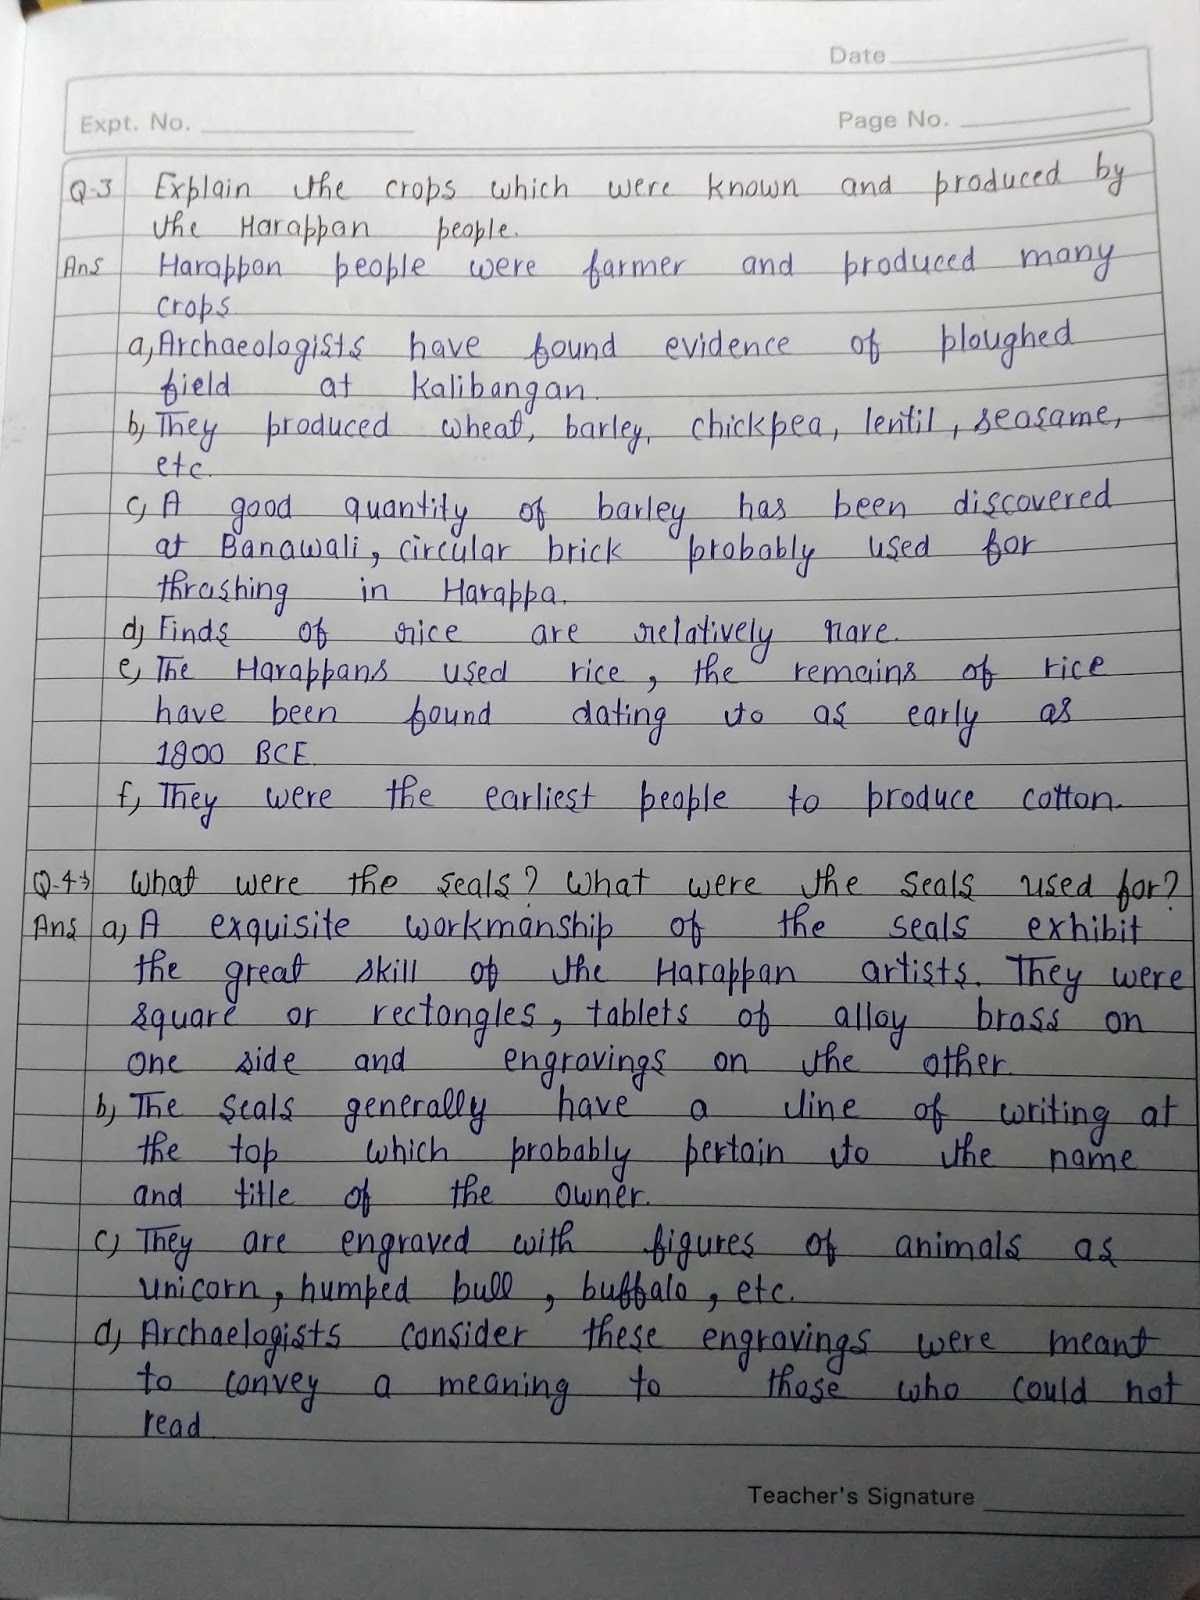 Date
Expt. No.
Page No.
Q-3 Explain the crops which were known and produced by
the Harappan people.
Ans Harappan people were farmer and produced many
crops.
a, Archaeologists have found evidence of ploughed
field at Kalibangan.
b, They produced wheat, barley, chickpea, lentil, seasame,
etc.
c, A good quantity of barley has been discovered
at Banawali, circular brick probably used for
thrashing in Harappa.
d, Finds of rice are relatively rare.
e, The Harappans used rice, the remains of rice
have been found dating to as early as
1800 BCE.
f, They were the earliest people to produce cotton.
Q-4→ What were the seals? What were the seals used for?
Ans a, A exquisite workmanship of the seals exhibit
the great skill of the Harappan artists. They were
square or rectongles, tablets of alloy brass on
one side and engravings on the other.
b, The seals generally have a line of writing at
the top which probably pertain to the name
and title of the owner.
c, They are engraved with figures of animals as
unicorn, humped bull, buffalo, etc.
d, Archaelogists consider these engravings were meant
to convey a meaning to those who could not
read.
Teacher's Signature